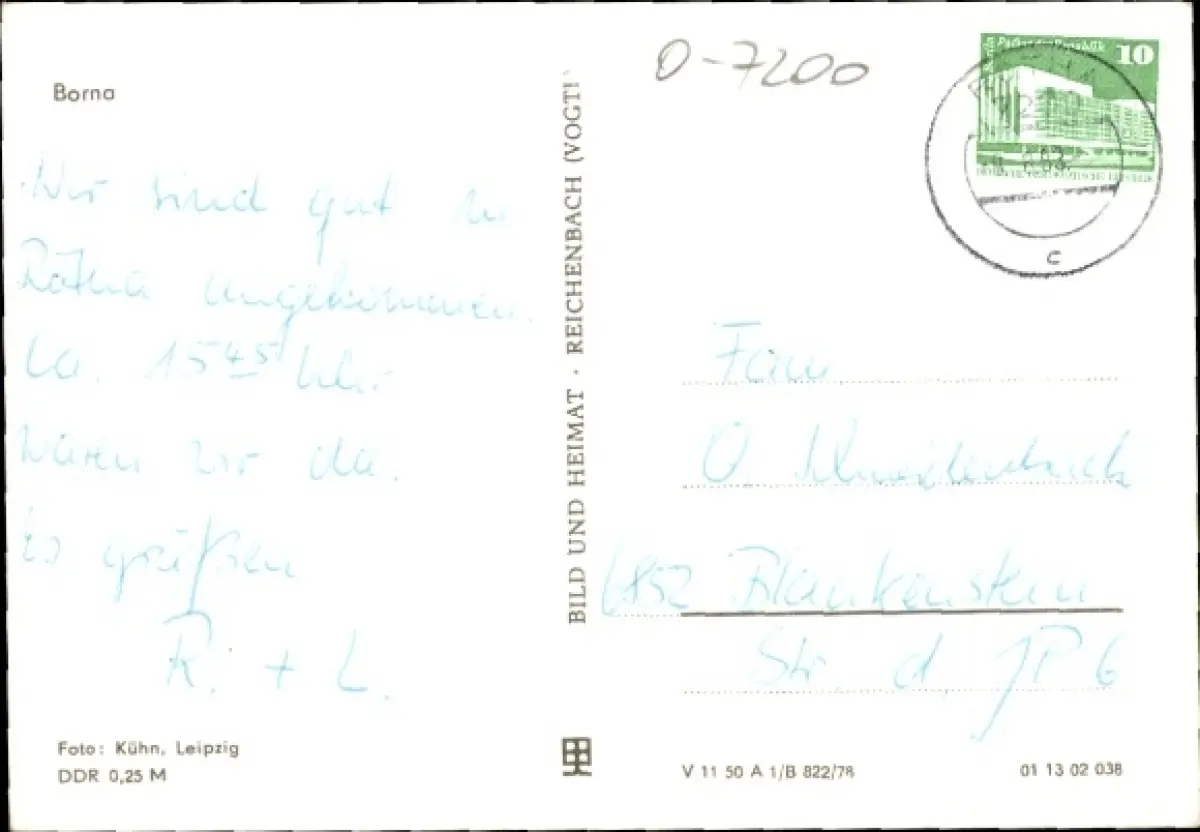 Borna
Wir sind gut in
Rötha angekommen.
Ca. 15 45 Uhr
waren wir da.
Es grüßen
R. + L.
Foto: Kühn, Leipzig
DDR 0,25 M
BILD UND HEIMAT · REICHENBACH (VOGTL)
O-7200
Berlin Palast der Republik
10
83
c
Fam
O.
6852 Blankenstein
Str. d. JP 6
V 11 50 A 1/B 822/78
01 13 02 038